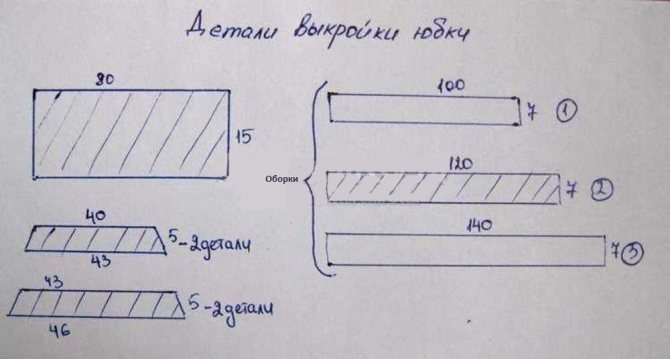 Детали выкройки юбки
80
15
40
5-2детали
43
43
5-2детали
46
Оборки
100
7 1
120
7 2
140
7 3